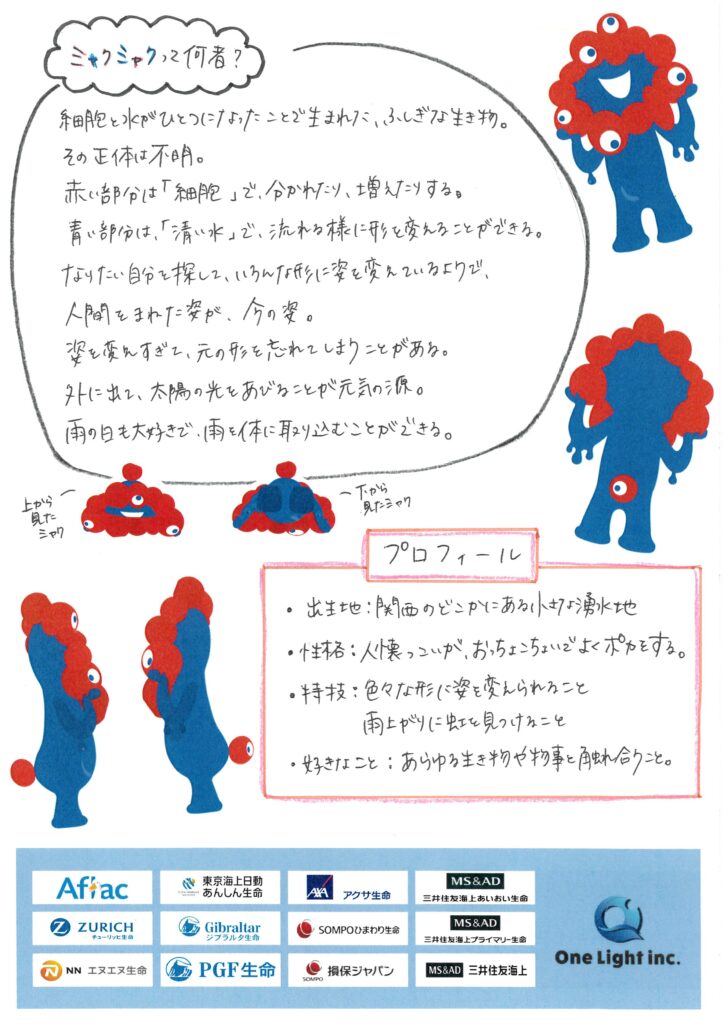 ミャクミャクって何者？
細胞と水がひとつになったことで生まれた、ふしぎな生き物。
その正体は不明。
赤い部分は「細胞」で、分かれたり、増えたりする。
青い部分は、「清い水」で、流れる様に形を変えることができる。
なりたい自分を探して、いろんな形に姿を変えているようで、
人間をまねた姿が、今の姿。
姿を変えすぎて、元の形を忘れてしまうことがある。
外に出て、太陽の光をあびることが元気の源。
雨の日も大好きで、雨を体に取り込むことができる。
上から
見た
ミャク
下から
見たミャク
プロフィール
・出生地：関西のどこかにある小さな湧水地
・性格：人懐っこいが、おっちょこちょいでよくポカをする。
・特技：色々な形に姿を変えられること
雨上がりに虹を見つけること
・好きなこと：あらゆる生き物や物事と触れ合うこと。
Aflac
東京海上日動
あんしん生命
AXA アクサ生命
MS&AD
三井住友海上あいおい生命
ZURICH
チューリッヒ生命
Gibraltar
ジブラルタ生命
SOMPOひまわり生命
MS&AD
三井住友海上プライマリー生命
NN エヌエヌ生命
PGF生命
SOMPO 損保ジャパン
MS&AD 三井住友海上
One Light inc.